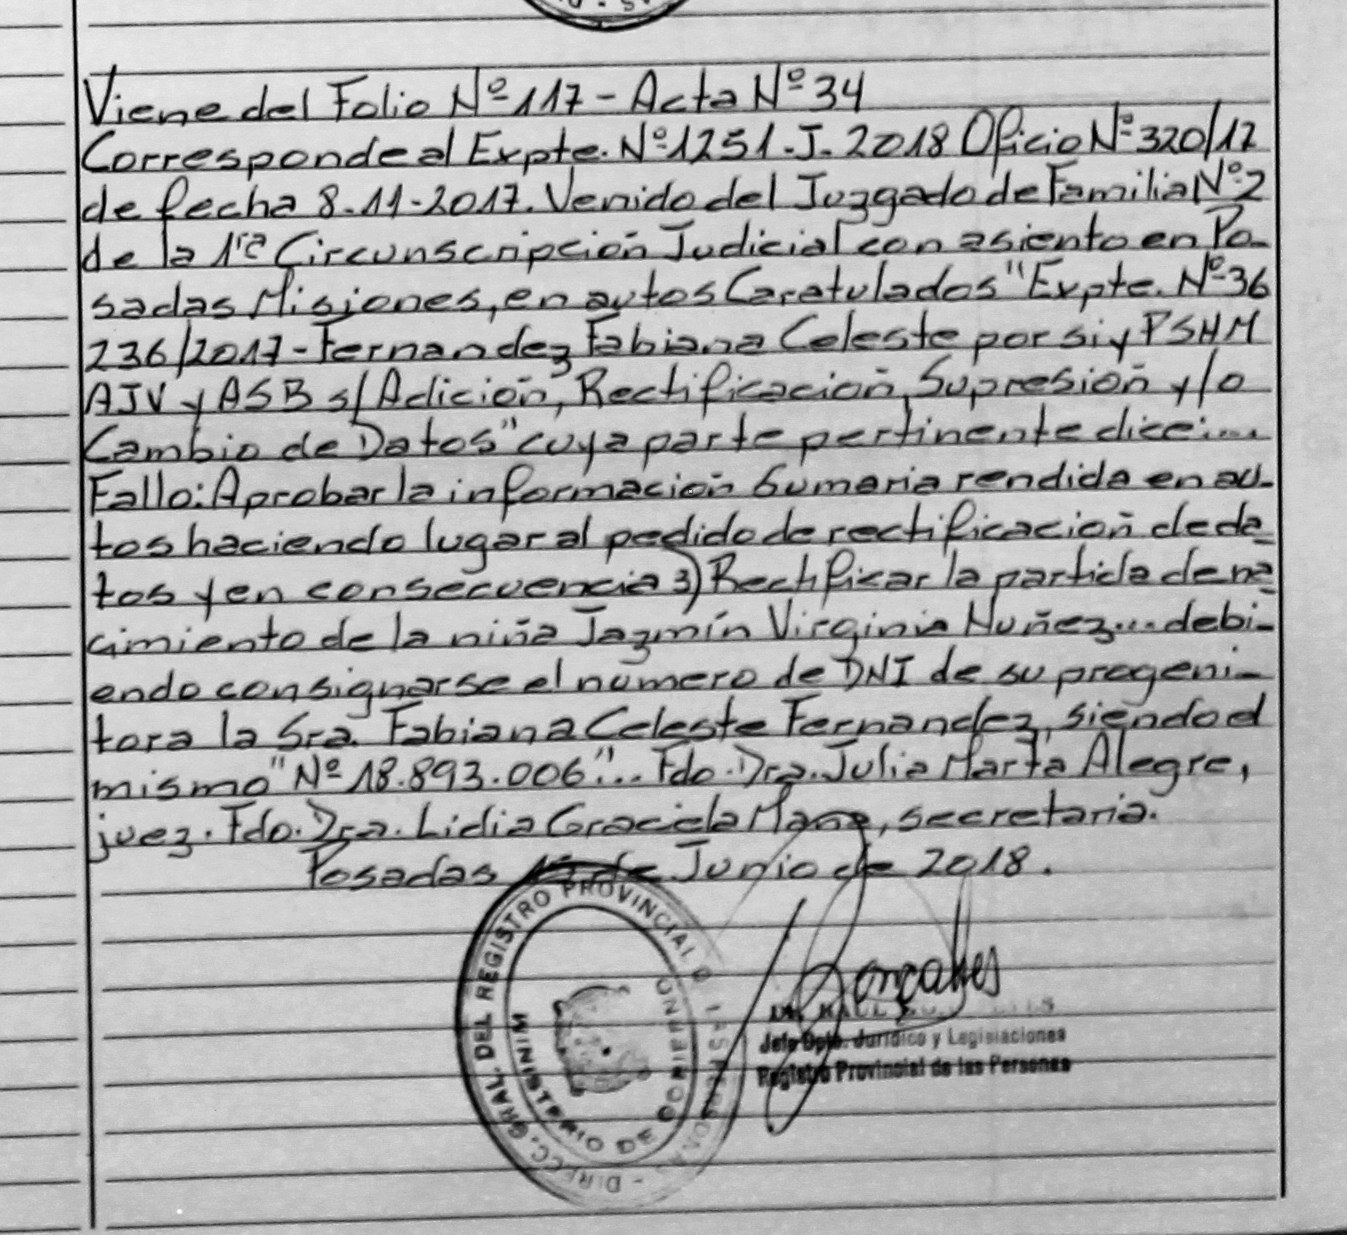 Viene del Folio Nº 117 - Acta Nº 34
Corresponde al Expte. Nº 1251. J. 2018 Oficio Nº 320/17
de fecha 8-11-2017. Venido del Juzgado de Familia Nº 2
de la 1ra Circunscripción Judicial con asiento en Po-
sadas Misiones, en autos Caratulados "Expte. Nº 36
236/2017 - Fernandez Fabiana Celeste por si y PSHM
AJV y ASB s/ Adición, Rectificación, Supresión y/o
Cambio de Datos" cuya parte pertinente dice:...
Fallo: Aprobar la información Sumaria rendida en au-
tos haciendo lugar al pedido de rectificación de da-
tos y en consecuencia 3) Rectificar la partida de na-
cimiento de la niña Jazmín Virginia Nuñez... debi-
endo consignarse el número de DNI de su progeni-
tora la Sra. Fabiana Celeste Fernandez, siendo el
mismo "Nº 18.893.006"... Fdo. Dra. Julia Marta Alegre,
juez. Fdo. Dra. Lidia Graciela, secretaria.
Posadas de Junio de 2018.
DIRECC. GRAL. DEL REGISTRO PROVINCIAL D LAS PERSONAS
MINISTERIO DE GOBIERNO
Jefe Dpto. Jurídico y Legislaciones
Registro Provincial de las Personas